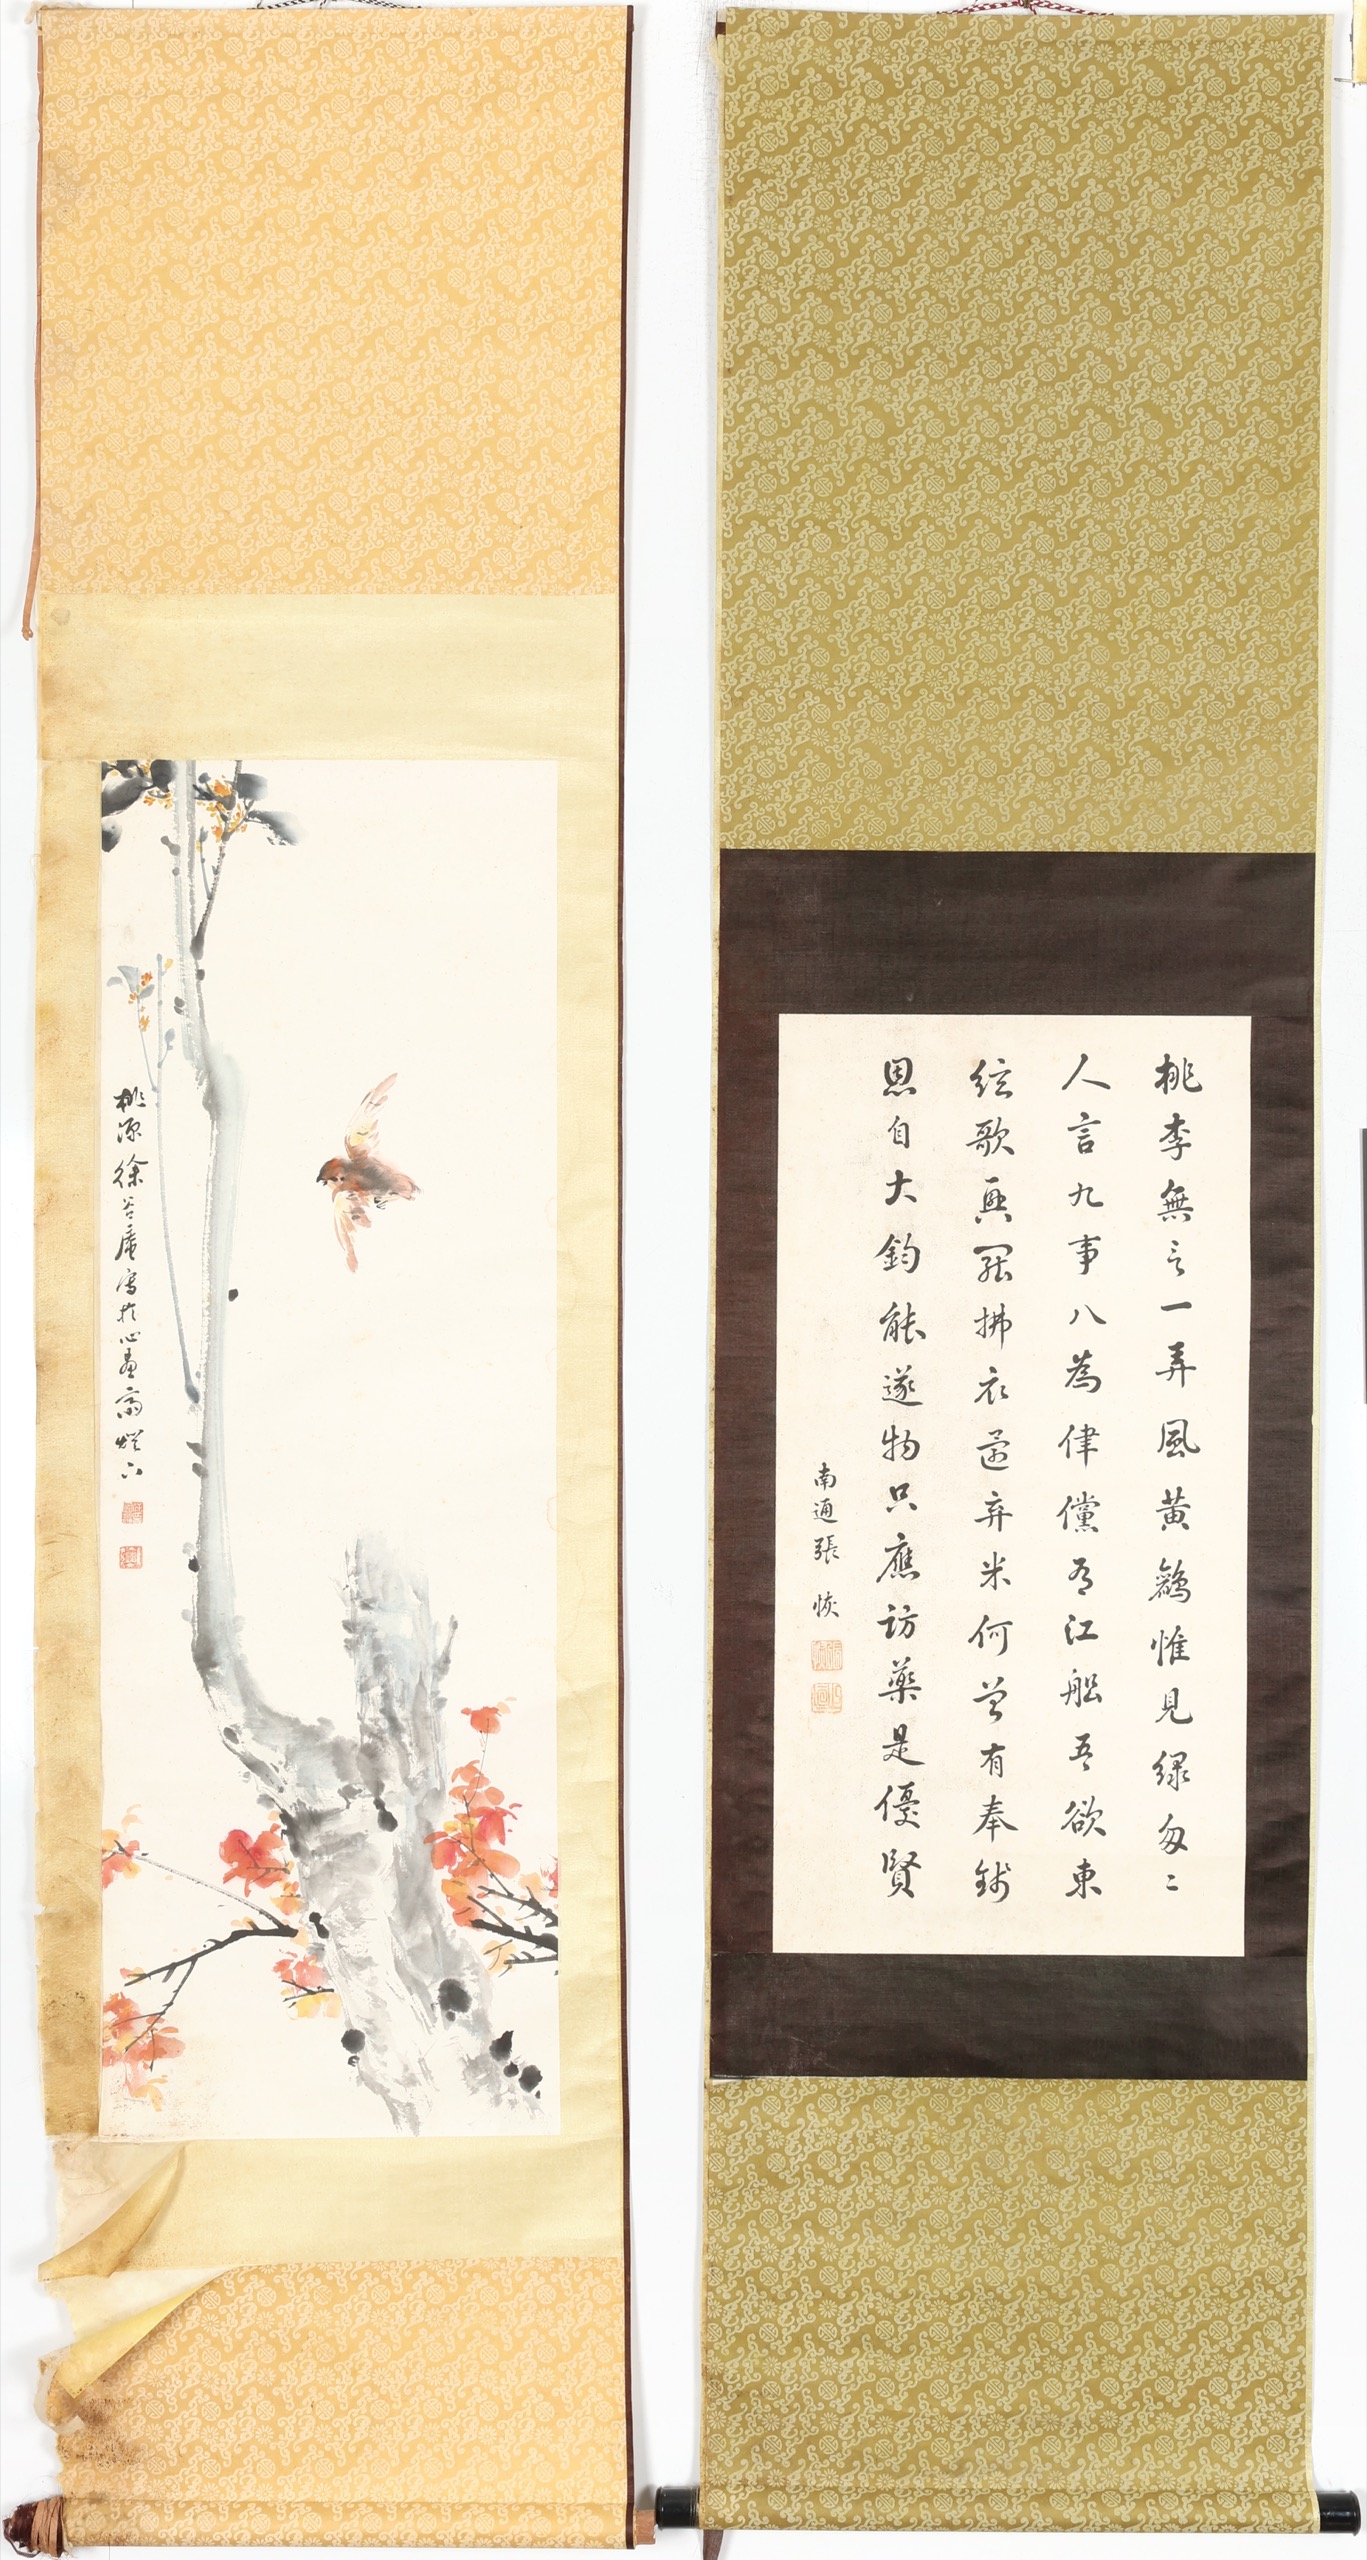 桃李無言一弄風黄鸝惟見綠匆〻
人言九事八為律儻有江船吾欲東
絃歌興罷拂衣還弃米何曾有奉錢
恩自大鈞能遂物只應訪藥是優賢
南通張恢
桃源徐谷庵寫於心畫齋燈下